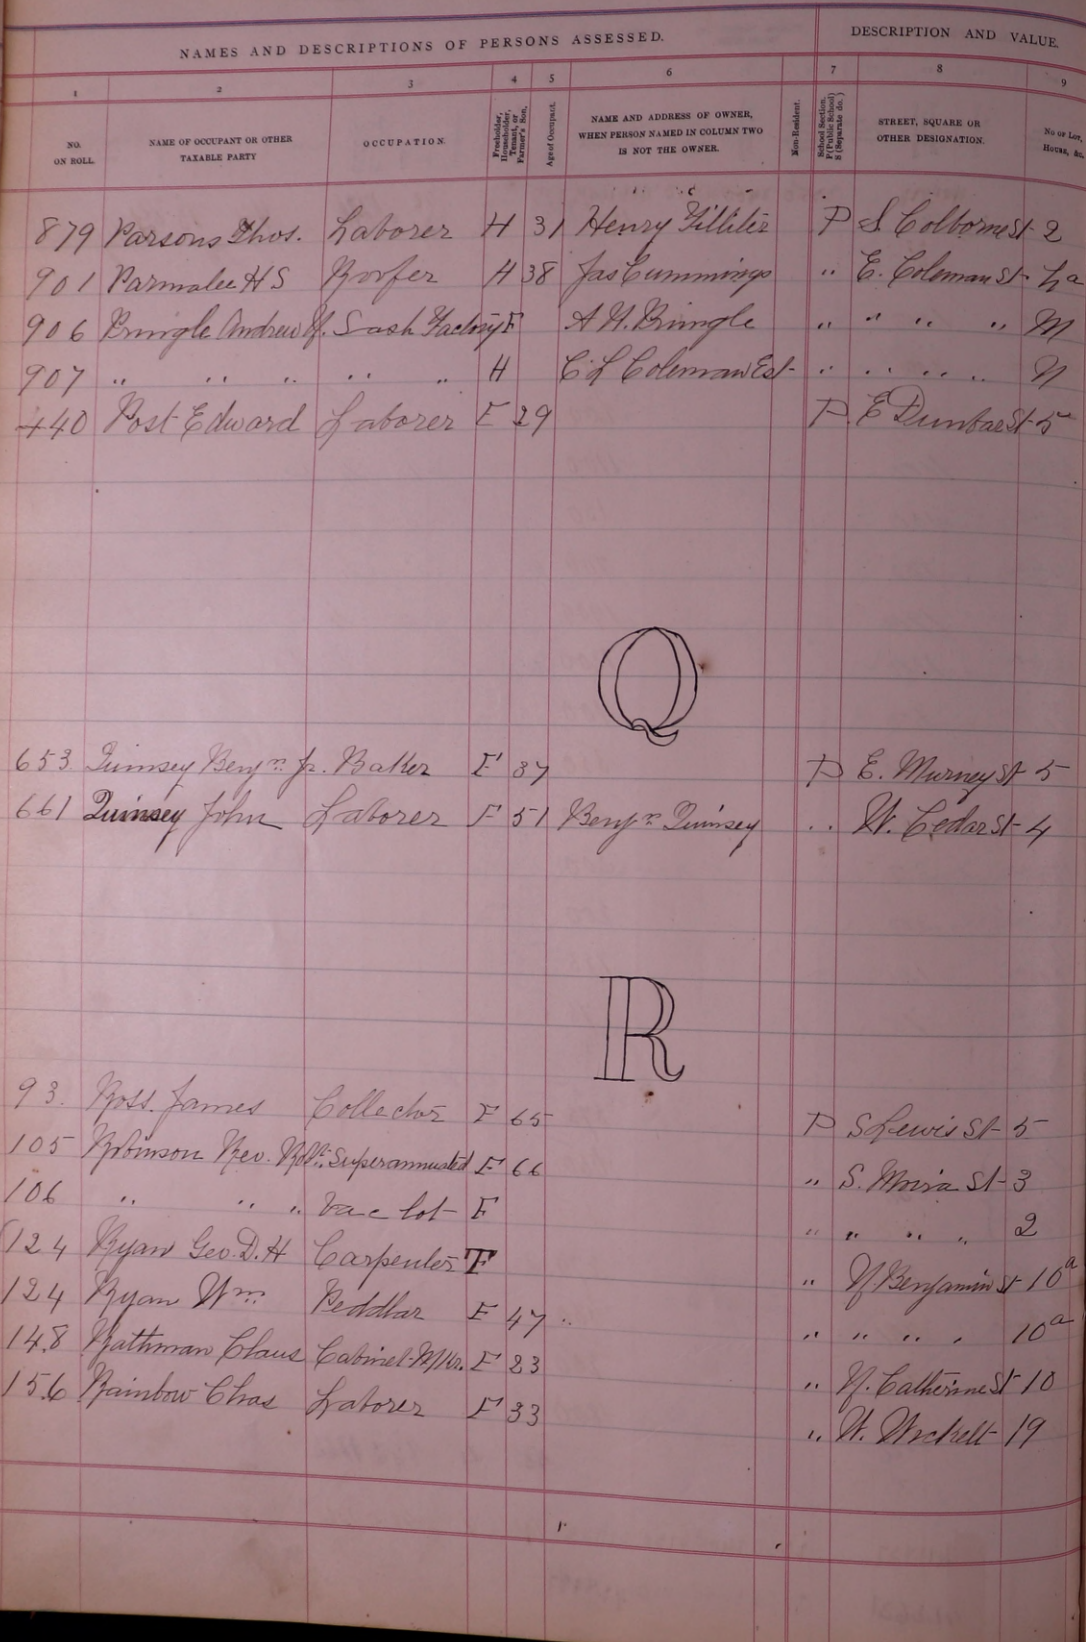 NAMES AND DESCRIPTIONS OF PERSONS ASSESSED. DESCRIPTION AND VALUE
1 2 3 4 5 6 7 8 9
NO. ON ROLL. NAME OF OCCUPANT OR OTHER TAXABLE PARTY OCCUPATION. Freeholder, Householder, Tenant, or Farmer's Son. Age of Occupant. NAME AND ADDRESS OF OWNER, WHEN PERSON NAMED IN COLUMN TWO IS NOT THE OWNER. Non-Resident. School Section. P (Public School) S (Separate do.) STREET, SQUARE OR OTHER DESIGNATION. No of Lot, House, &c.
879 Parsons Thos. Laborer H 31 Henry Filliter P S. Colborne St 2
901 Parmalee H S Roofer H 38 Jas Cummings " E. Coleman St La
906 Pringle Andrew H. Sash Factory F A H. Pringle " " " " M
907 " " " " " H C L Coleman Est " " " " " N
440 Post Edward Laborer F 29 P E Dunbar St 5
Q
653 Quinsey Benjn Jr. Baker F 37 P E. Murney St 5
661 Quinsey John Laborer F 51 Benjn Quinsey " W. Cedar St 4
R
93. Ross James Collector F 65 P S Lewis St 5
105 Robinson Rev. Robt. Superannuated F 66 " S. Moira St 3
106 " " " Vac lot F " " " " 2
124 Ryan Geo. D. H Carpenter F " N. Benjamin St 10a
124 Ryan Wm Peddlar F 47 " " " " " 10a
148 Rathman Claus Cabinet Mkr. F 23 " N. Catherine St 10
156 Rainbow Chas Laborer F 33 " W. Wickett 19